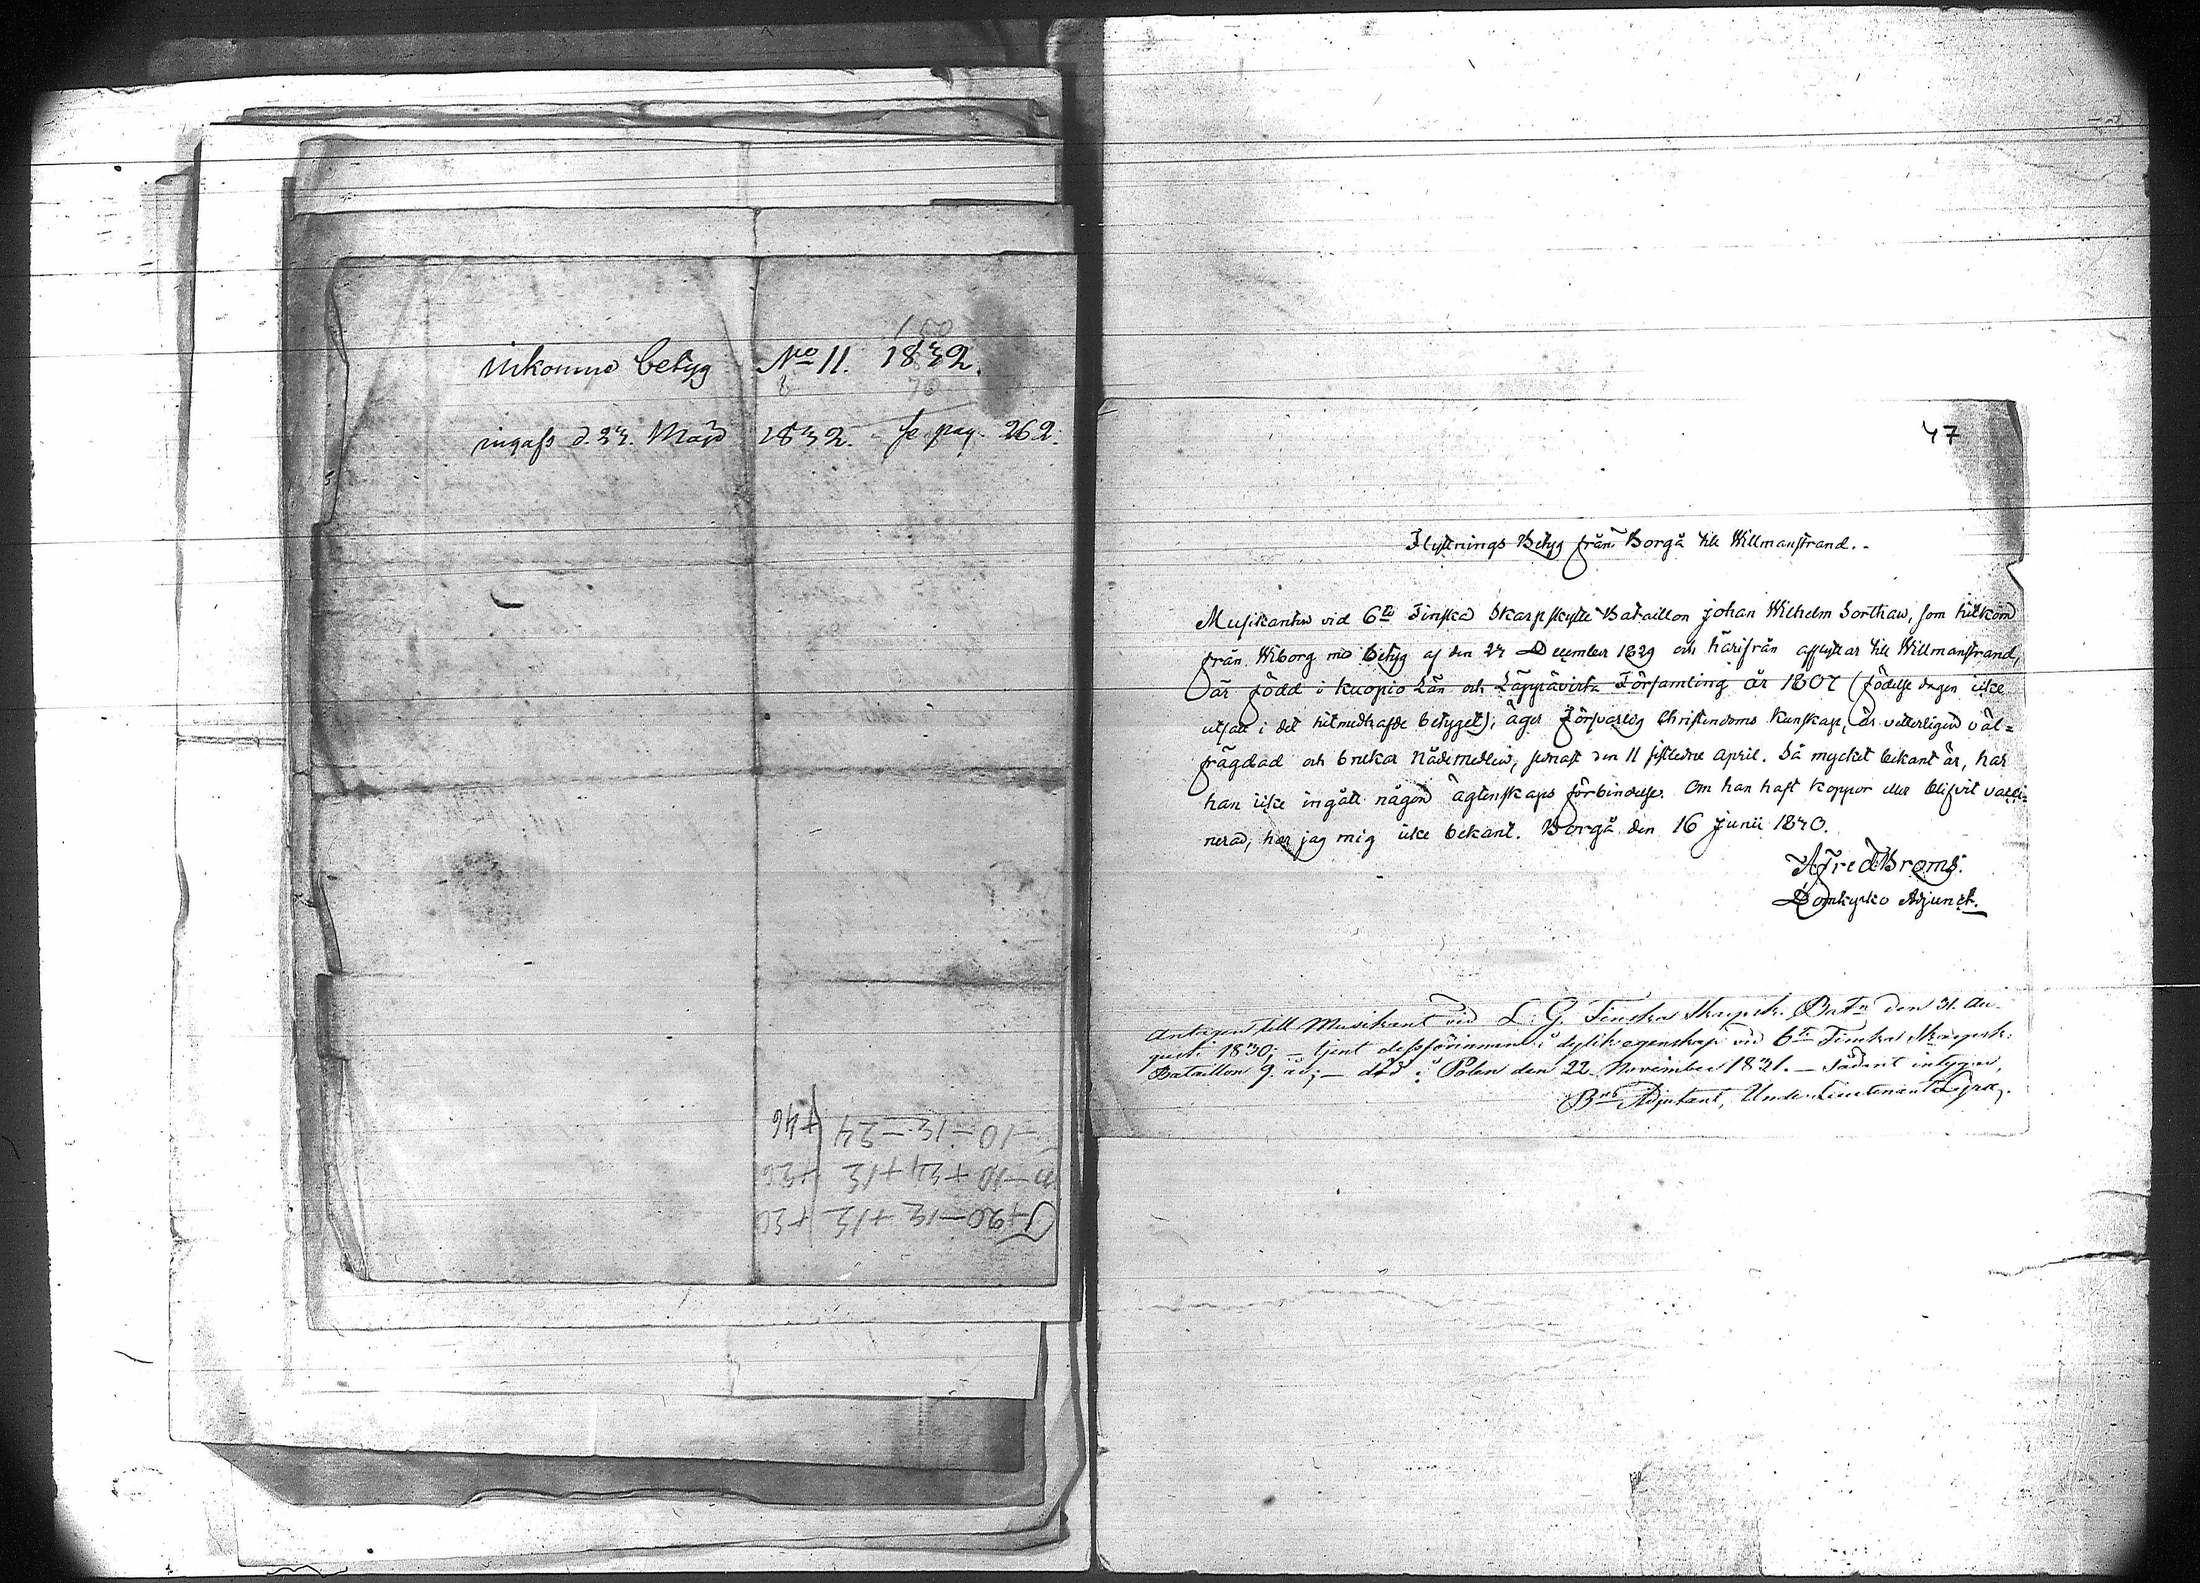 inkomne betyg No 11. 1832.
ingafs d. 23. Mars 1832. - se pag. 262.
+46 -10-12-24
-10+24+12
+20-12+12
47
Flyttnings Betyg från Borgå till Willmanstrand..
Musikanten vid 6te Finska Skarpskytte Bataillon Johan Wilhelm Sorthan, som hitkom
från Wiborg med Betyg af den 24 December 1829 och härifrån afflyttar till Willmanstrand,
är född i Kuopio Län och Läppävirta Församling år 1807 (födelse dagen icke
utsatt i det hitmedhafde betyget), äger försvarlig Christendoms Kunskap, är vitterligen väl=
frägdad och brukar Nådemedlen, senast den 11 sistledne April. Så mycket bekant är, har
han icke ingått någon ägtenskaps förbindelse. Om han haft Koppor eller blifvit vacci=
nerad, har jag mig icke bekant. Borgå den 16 Junii 1830.
Alfred Broms.
Domkyrko Adjunct.
Antagen till Musikant vid L. G. Finska Skarpsk. Batn den 31. Au-
gusti 1830; - tjent dessförinnan i dylik egenskap vid 6te Finska Skarpsk:
Bataillon 9. år; - död i Polen den 22 November 1831. - Sådant intygar,
Bns Adjutant, Under-Lieutenant